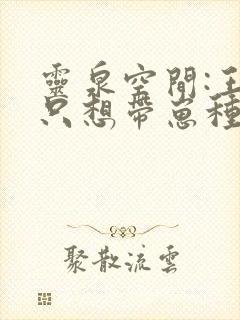 靈泉空間:王
只想帶崽種
聚散流雲